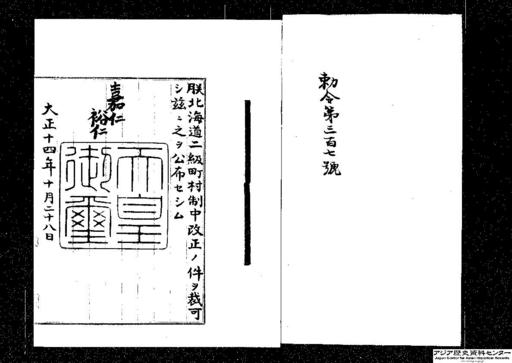 勅令第三百七號
朕北海道二級町村制中改正ノ件ヲ裁可
シ玆ニ之ヲ公布セシム
嘉仁
裕仁
天皇
御璽
大正十四年十月二十八日
アジア歴史資料センター
Japan Center for Asian Historical Records